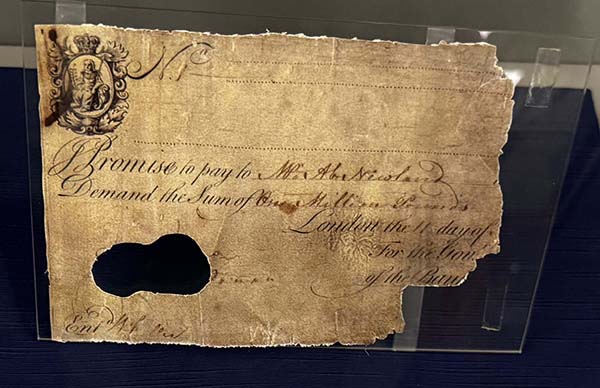 N.º
I Promise to pay to Mr. Ab. Newland
Demand the Sum of One Million Pounds
London the 11 day of
For the Gov
of the Ban
Ent.d